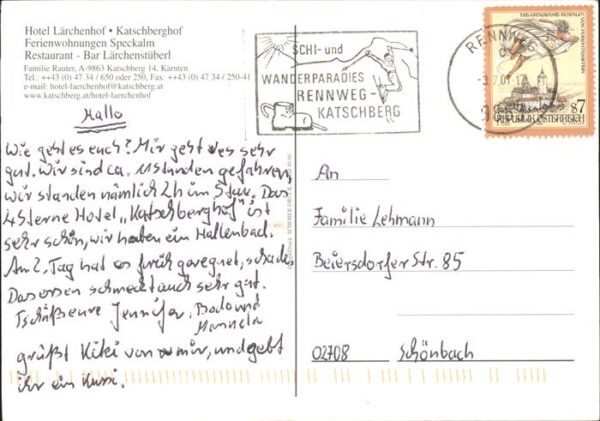 Hotel Lärchenhof • Katschberghof
Ferienwohnungen Speckalm
Restaurant - Bar Lärchenstüberl
Familie Rauter, A-9863 Katschberg 14, Kärnten
Tel.: ++43 (0) 47 34 / 650 oder 250, Fax: ++43 (0) 47 34 / 250-41
e-mail: hotel-laerchenhof@katschberg.at
www.katschberg.at/hotel-laerchenhof
Hallo
Wie geht es euch? Mir geht es sehr
gut. Wir sind ca. 11 Stunden gefahren,
wir standen nämlich 2h im Stau. Das
4 Sterne Hotel „Katschberghof" ist
sehr schön, wir haben ein Hallenbad.
Am 2. Tag hat es früh geregnet, schade.
Das essen schmeckt auch sehr gut.
Tschüß eure Jennifer, Bodo und
Manuela
grüßt Kiki von mir, und gebt
ihr ein Kussi.
SCHI- und
WANDERPARADIES
RENNWEG-
KATSCHBERG
RENNWEG
S7
REPUBLIK ÖSTERREICH
An
Familie Lehmann
Beiersdorfer Str. 85
02708 Schönbach